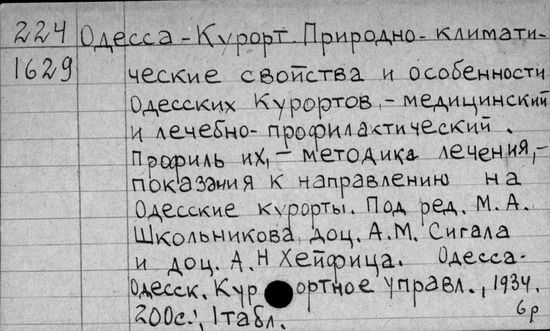 224 Одесса-Курорт. Природно-климати-
1629 ческие свойства и особенности
Одесских Курортов,-медицинский
и лечебно-профилактический.
Профиль их,-методика лечения,-
показания к направлению на
Одесские курорты. Под ред. М.А.
Школьникова, доц. А.М. Сигала
и доц. А.Н Хейфица. Одесса-
Одесск. Кур ортное управл., 1934.
200с., 1табл. 6р